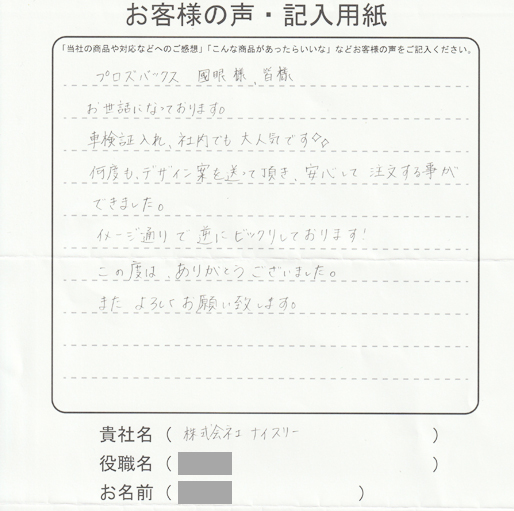 お客様の声・記入用紙
「当社の商品や対応などへのご感想」「こんな商品があったらいいな」などお客様の声をご記入ください。
プロズバックス 國眼様、皆様
お世話になっております。
車検証入れ、社内でも大人気です◇◇
何度も、デザイン案を送って頂き、安心して 注文する事が
できました。
イメージ通りで 逆にビックリしております!
この度は、ありがとうございました。
また よろしくお願い致します。
貴社名( 株式会社 ナイスリー )
役職名( )
お名前( )